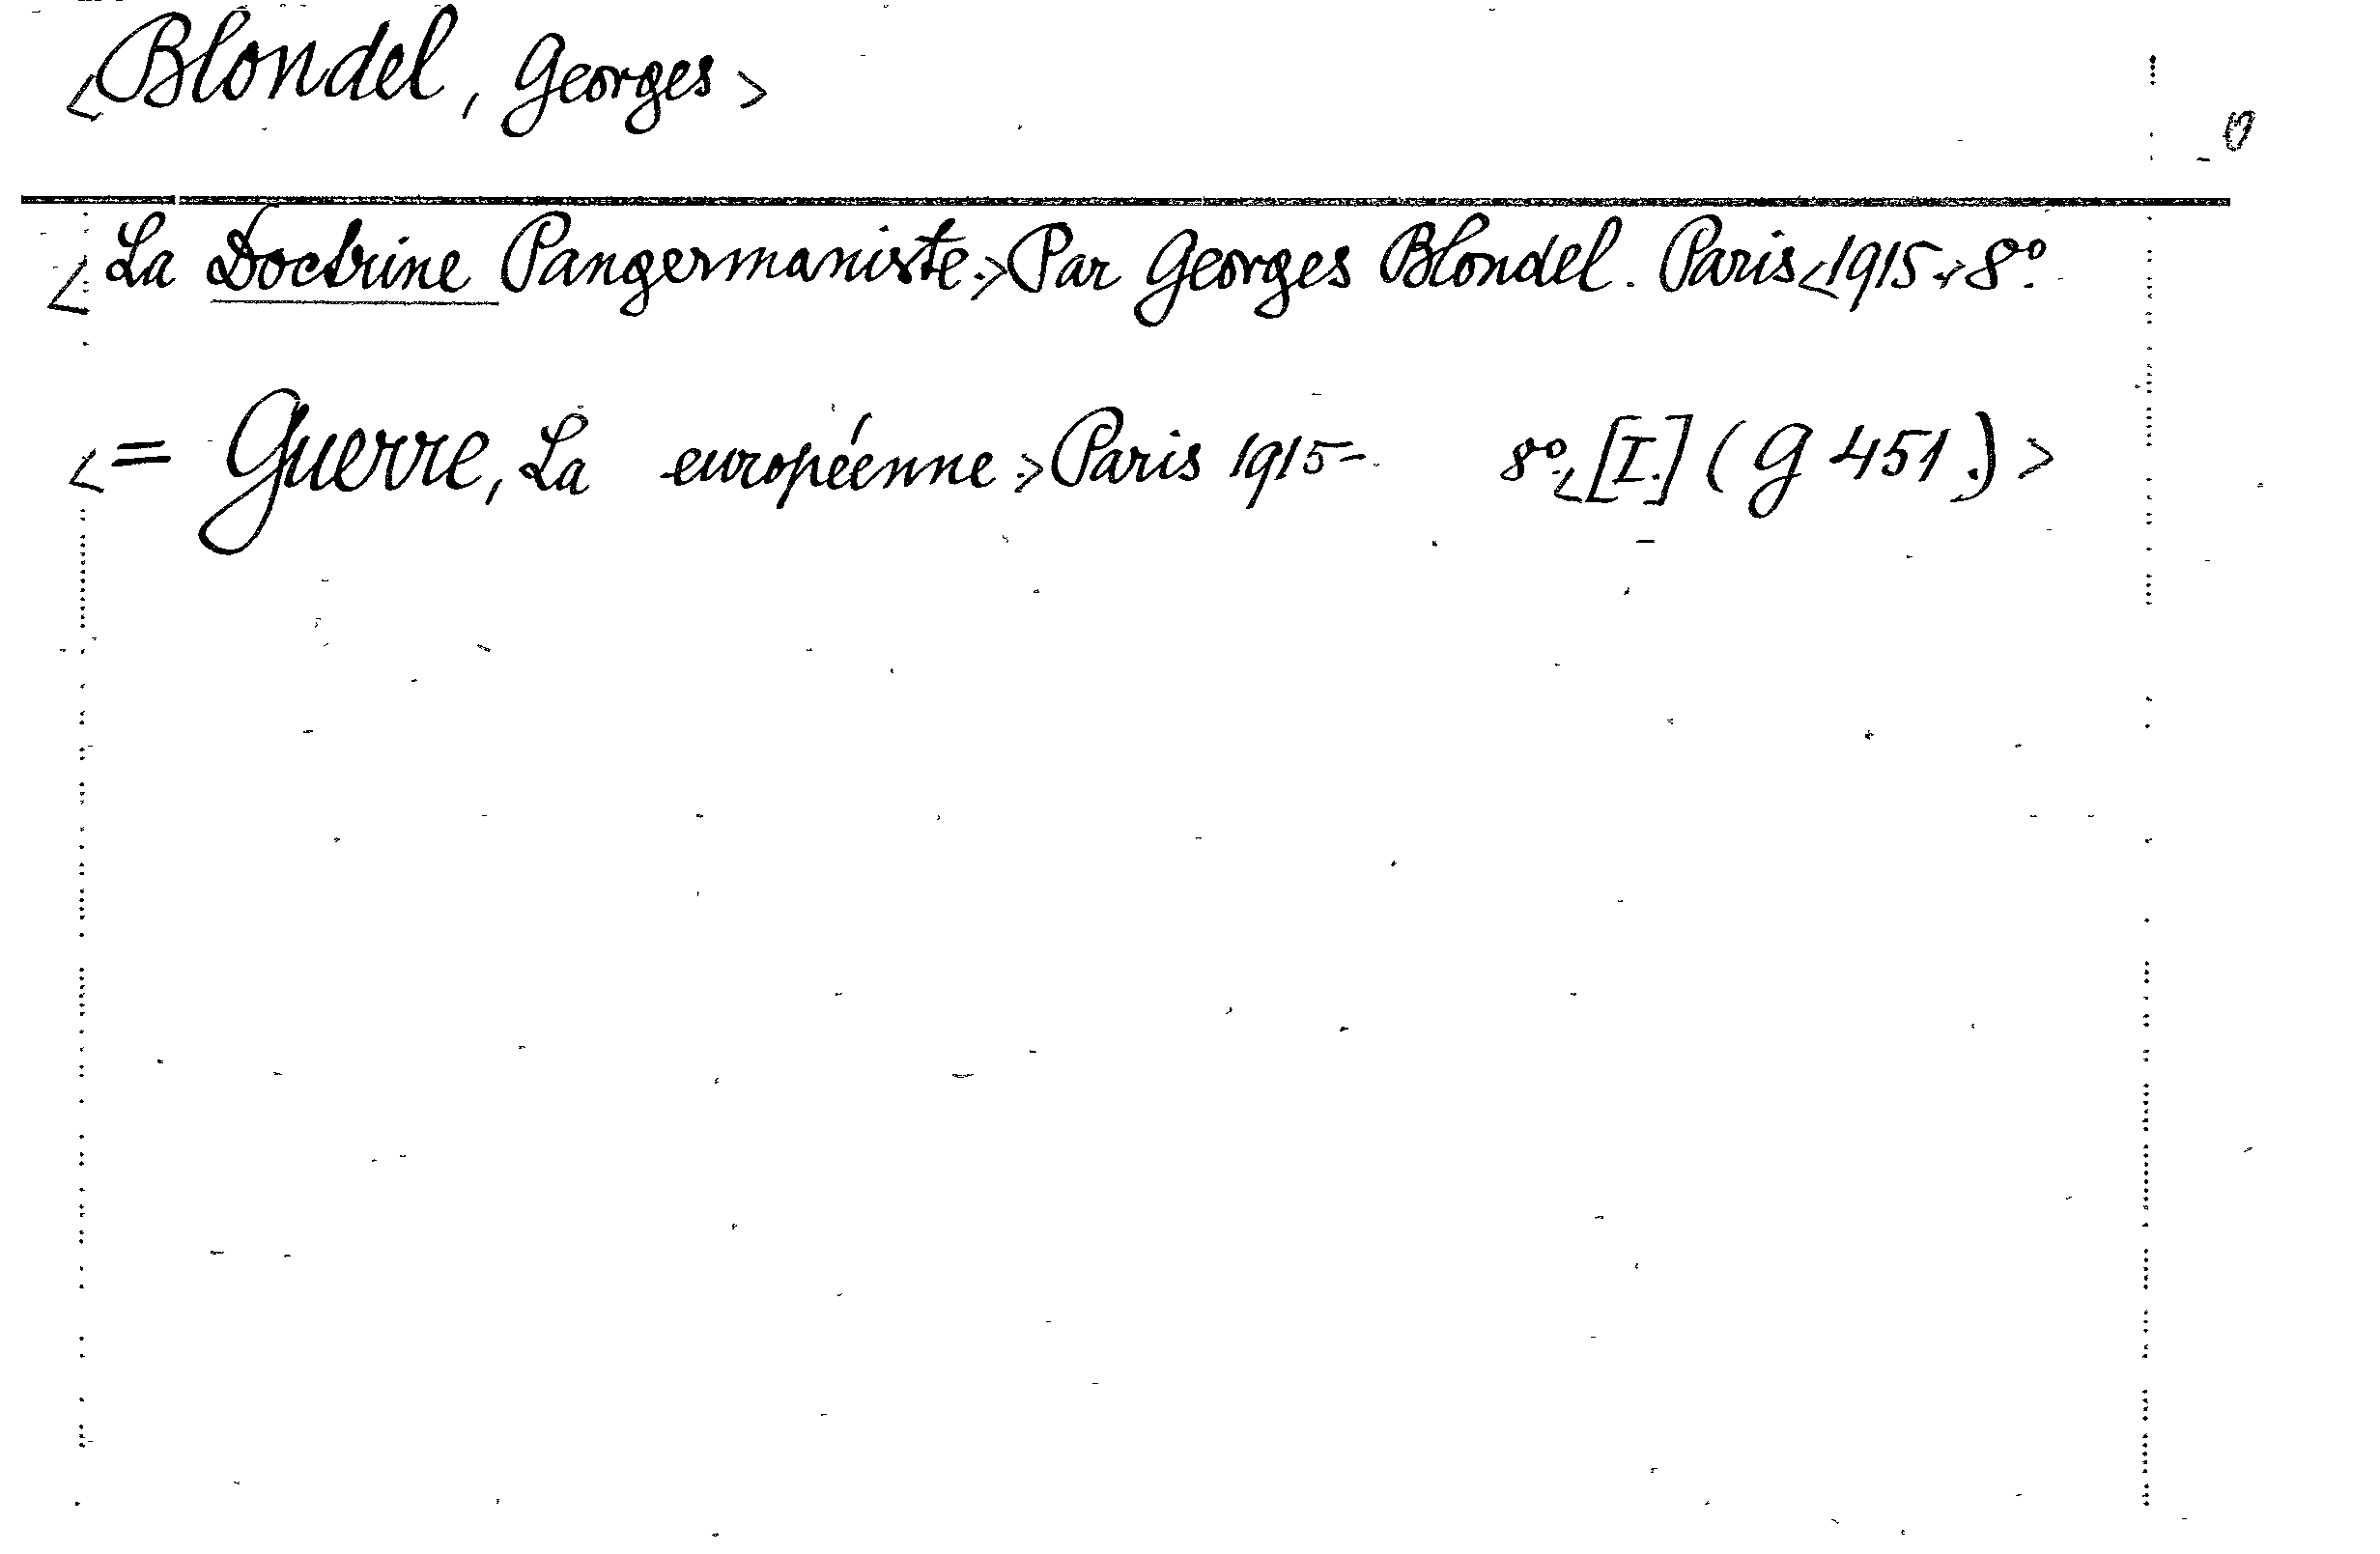 <Blondel, Georges>
<La Doctrine Pangermaniste.> Par Georges Blondel. Paris <1915.> 8º.
<= Guerre, La européenne.> Paris 1915- 8º. <[I.] (G 451.)>